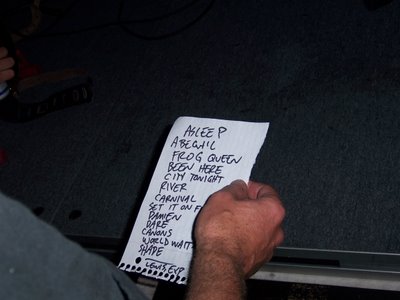 ASLEEP
ABEGAIL
FROG QUEEN
BEEN HERE
CITY TONIGHT
RIVER
CARNIVAL
SET IT ON F
DAMIEN
DARE
CANONS
WORLD WAIT
SHAPE